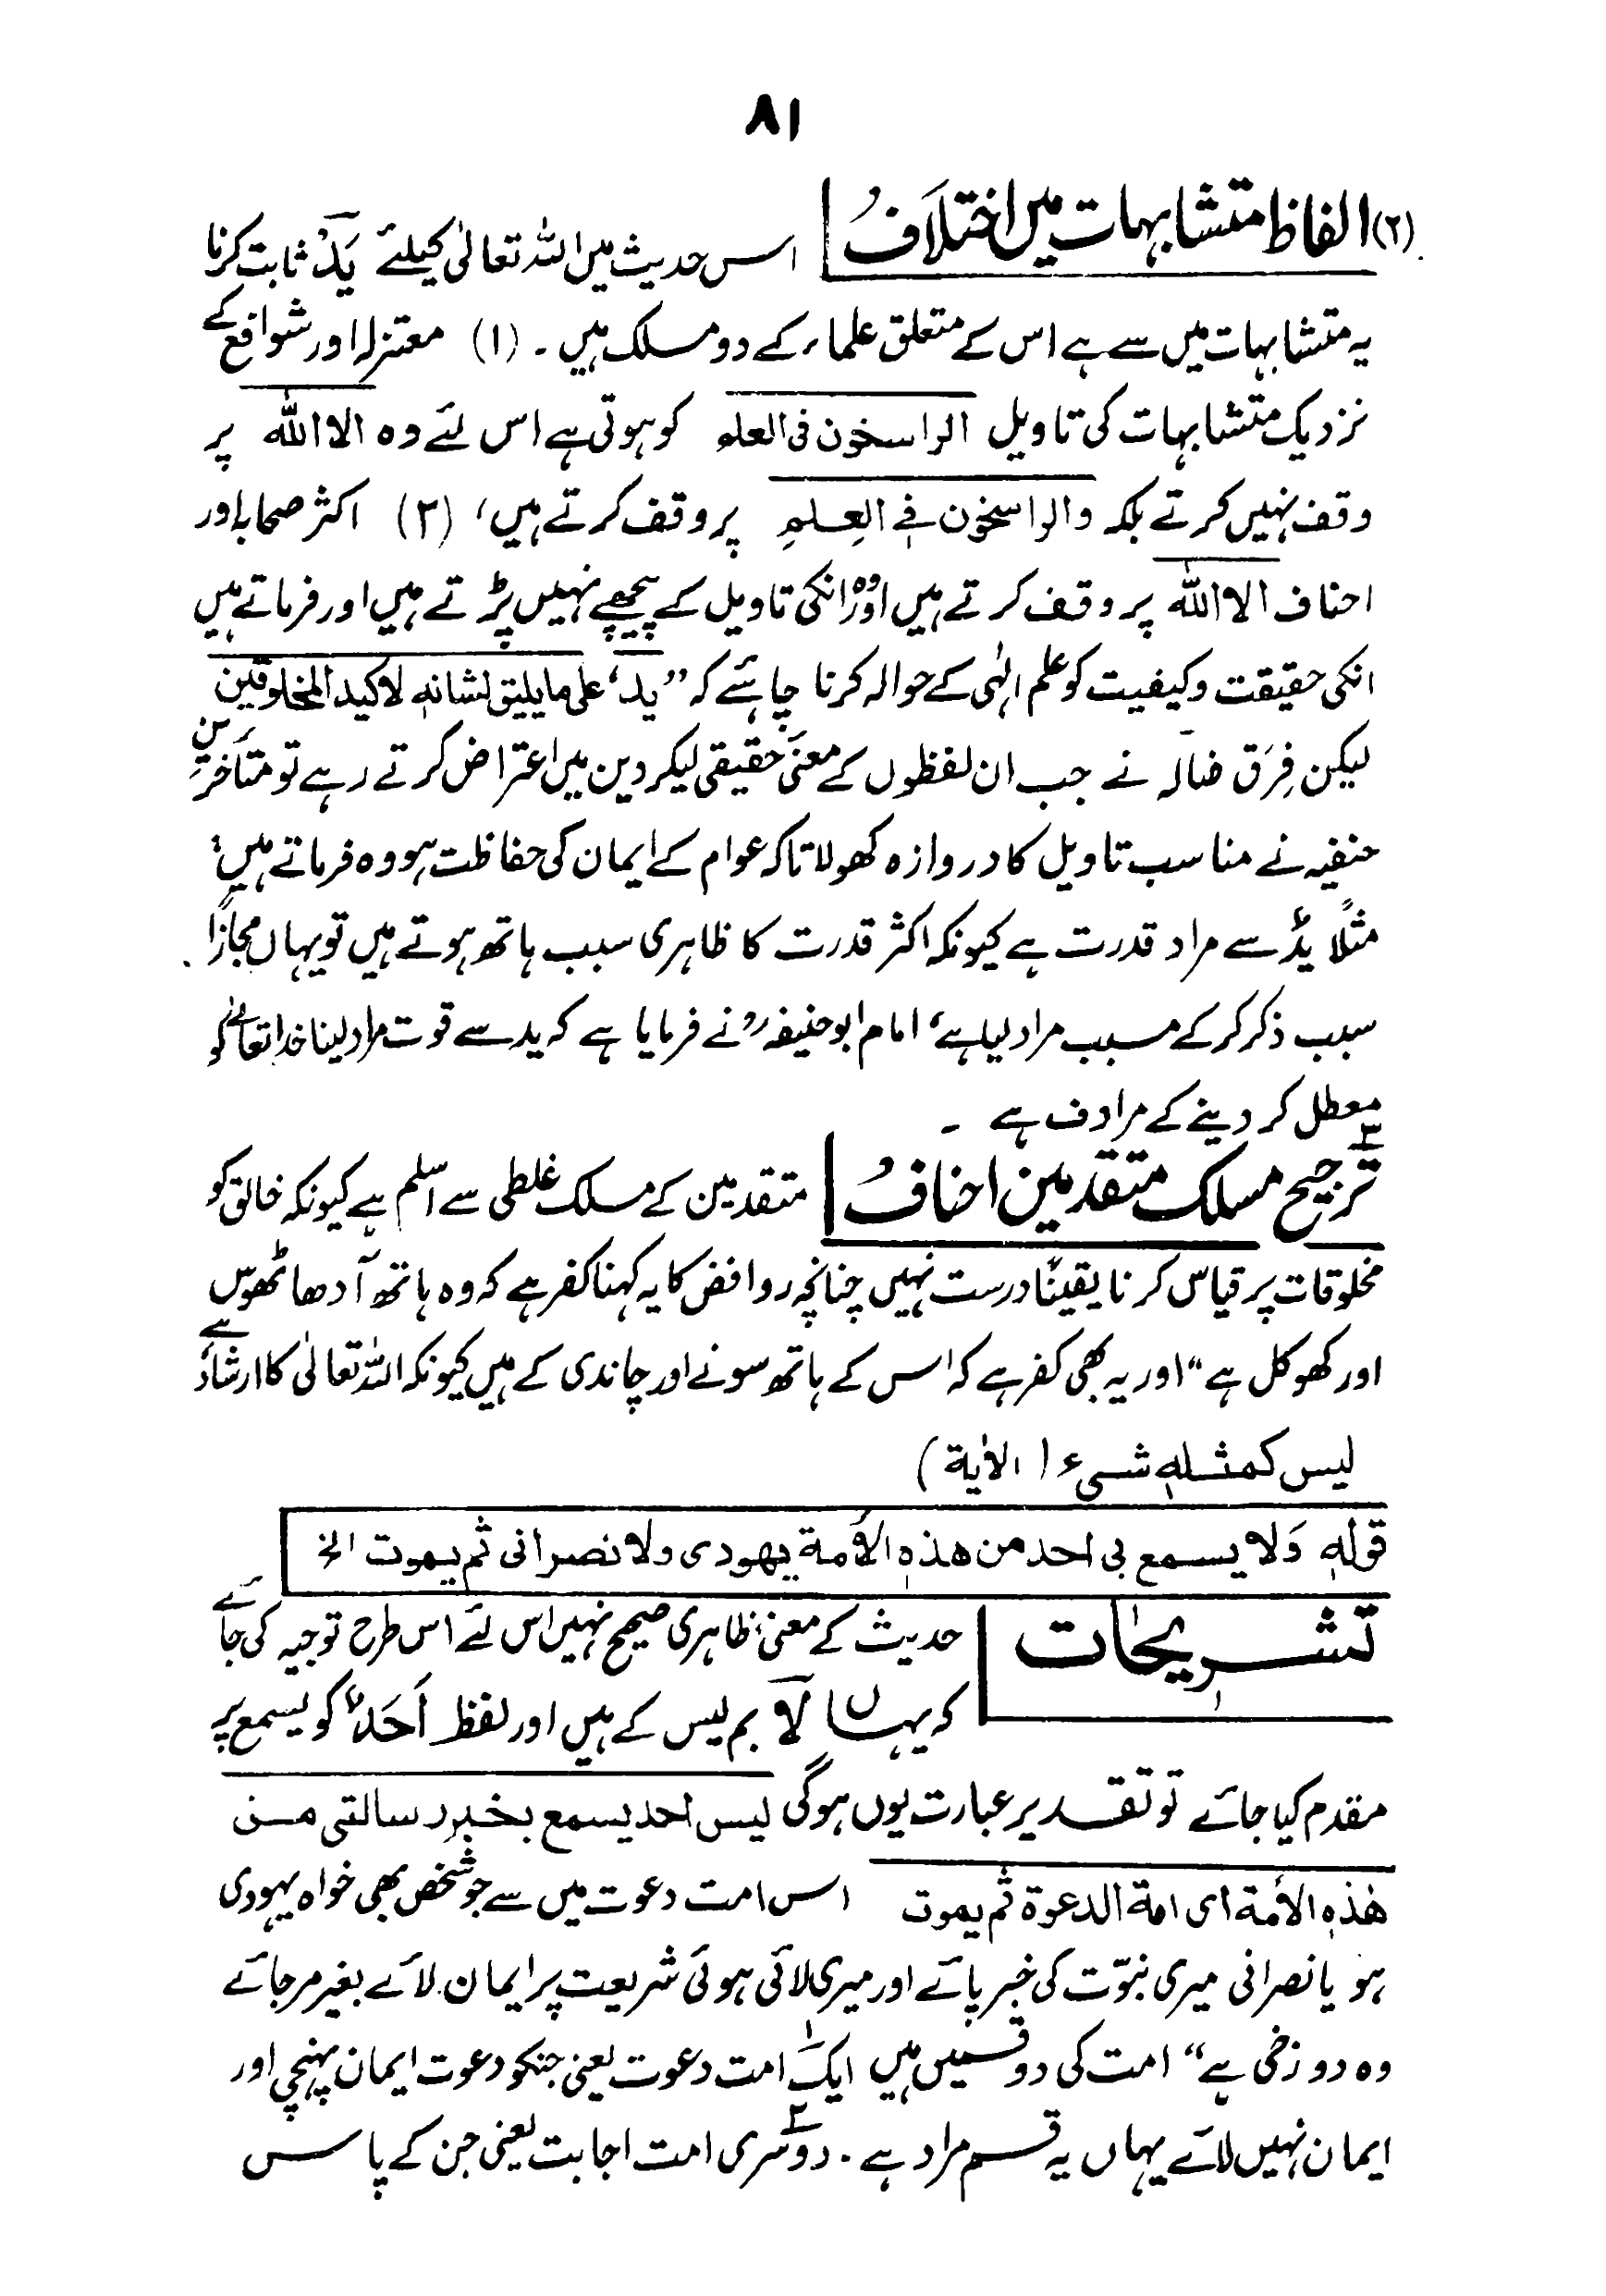 ۸۱
(۲) الفاظ متشابہات میں اختلاف اس حدیث میں اللہ تعالیٰ کیلئے یَدٌ ثابت کرنا
یہ متشابہات میں سے ہے اس کے متعلق علماء کے دو مسلک ہیں ۔ (۱) معتزلہ اور شوافع کے
نزدیک متشابہات کی تاویل الراسخون فی العلم کو ہوتی ہے اس لئے وہ الا اللہ پر
وقف نہیں کرتے بلکہ والراسخون فے العِلمِ پر وقف کرتے ہیں، (۲) اکثر صحابہ اور
احناف الا اللہ پر وقف کرتے ہیں اور وہ انکی تاویل کے پیچھے نہیں پڑتے ہیں اور فرماتے ہیں
انکی حقیقت و کیفیت کو علم الٰہی کے حوالہ کرنا چاہئے کہ ”ید، علی ما یلیق لشانہ لا کید المخلوقین
لیکن فِرَق ضالہ نے جب ان لفظوں کے معنیٰ حقیقی لیکر دین میں اعتراض کرتے رہے تو متأخرین
حنفیہ نے مناسب تاویل کا دروازہ کھولا تاکہ عوام کے ایمان کی حفاظت ہو وہ فرماتے ہیں؛
مثلاً یدٌ سے مراد قدرت ہے کیونکہ اکثر قدرت کا ظاہری سبب ہاتھ ہوتے ہیں تو یہاں مجازًا
سبب ذکر کرکے مسبب مراد لیا ہے، امام ابو حنیفہؒ نے فرمایا ہے کہ ید سے قوت مراد لینا خدا تعالےٰ کو
معطل کر دینے کے مرادف ہے ۔
ترجیح مسلک متقدمین احناف متقدمین کے مسلک غلطی سے اسلم ہے کیونکہ خالق کو
مخلوقات پر قیاس کرنا یقینًا درست نہیں چنانچہ روافض کا یہ کہنا کفر ہے کہ وہ ہاتھ آدھا ٹھوس
اور کھوکل ہے“ اور یہ بھی کفر ہے کہ اس کے ہاتھ سونے اور چاندی کے ہیں کیونکہ اللہ تعالیٰ کا ارشاد ہے
لیس کمثلہ شیء (الاٰیة)
قولہ وَلا یسمع بی احد من ھذہ الأمة یھودی ولا نصرانی ثم یموت الخ
تشریحات حدیث کے معنیٰ ظاہری صحیح نہیں اس لئے اس طرح توجیہ کی جائے
کہ یہاں لَا بم لیس کے ہیں اور لفظ اَحَدٌ کو یسمع پر
مقدم کیا جائے تو تقدیر عبارت یوں ہوگی لیس احد یسمع بخبر رسالتی من
ھٰذہ الأمة ای امة الدعوة ثم یموت اس امت دعوت میں سے جو شخص بھی خواہ یہودی
ہو یا نصرانی میری نبوّت کی خبر پائے اور میری لائی ہوئی شریعت پر ایمان لائے بغیر مر جائے
وہ دوزخی ہے“ امت کی دو قسمیں ہیں ایک امت دعوت یعنی جنکو دعوت ایمان پہنچی اور
ایمان نہیں لائے یہاں یہ قسم مراد ہے ۔ دوسری امت اجابت یعنی جن کے پاس